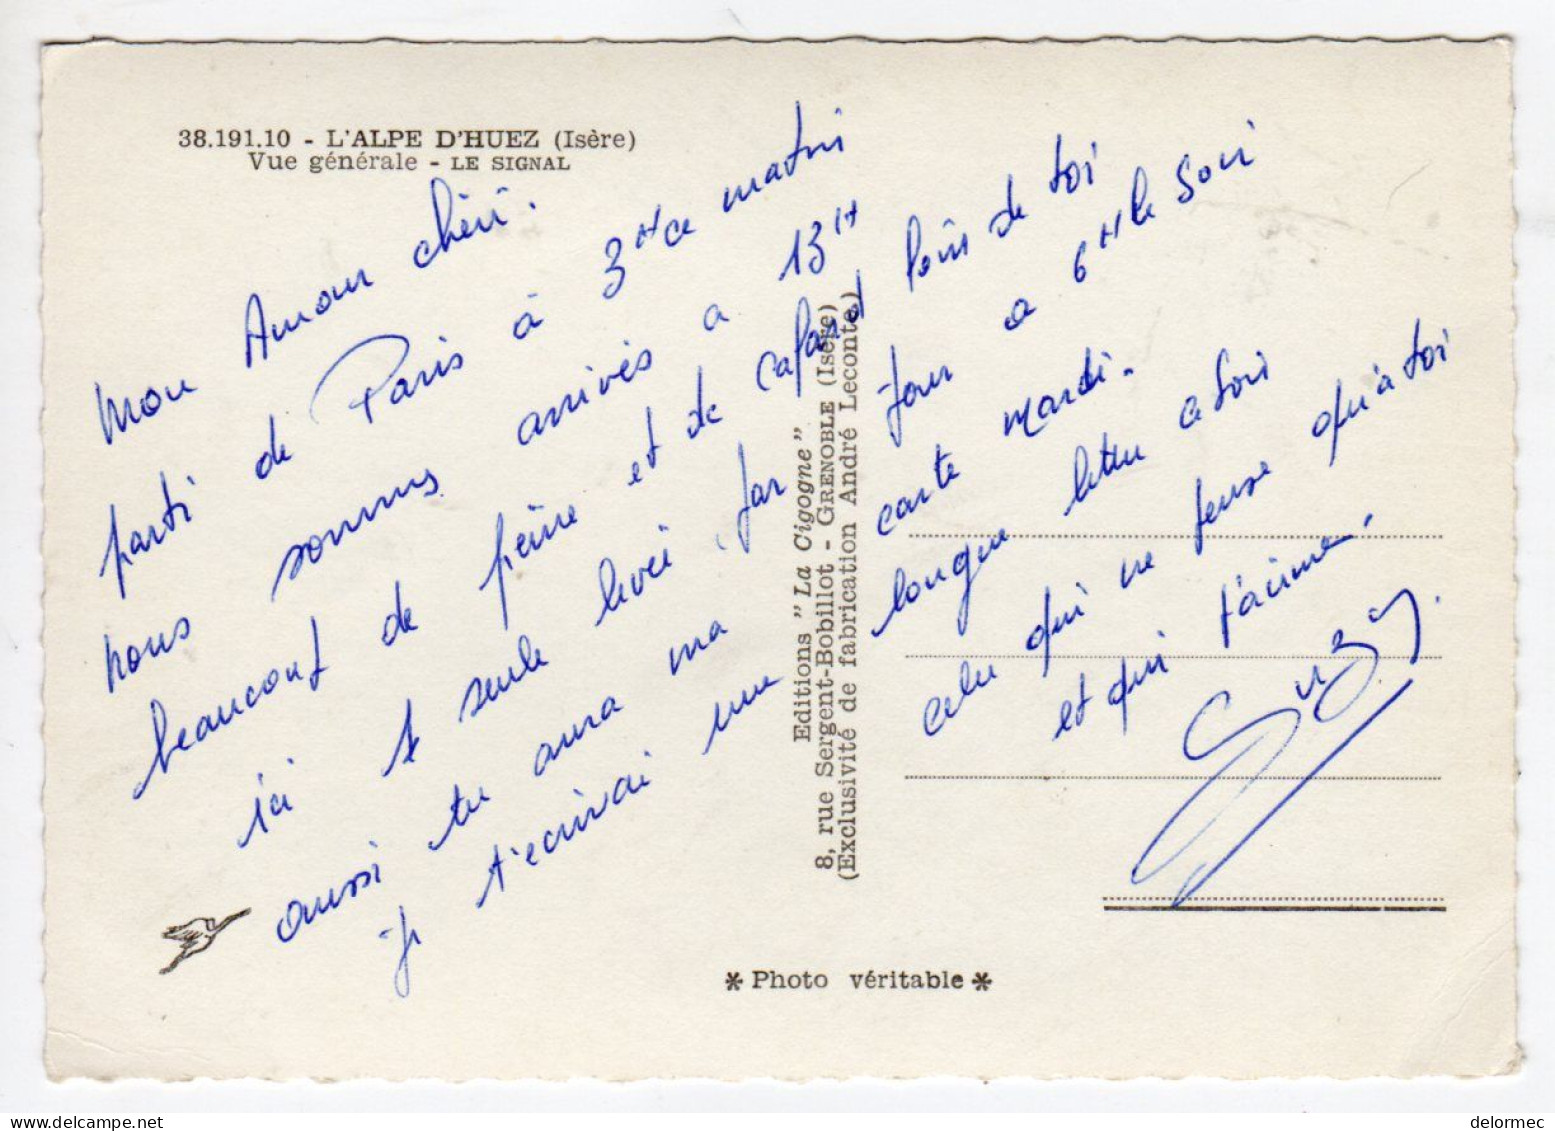 38.191.10 - L'ALPE D'HUEZ (Isère)
Vue générale - LE SIGNAL
Mon Amour chéri.
parti de Paris à 3H ce matin
nous sommes arrivés a 13H
beaucoup de peine et de cafard loin de toi
ici le seule levée par jour a 6H le soir
aussi tu aura ma carte mardi.
je t'ecrirai une longue lettre ce soir
celui qui ne pense qu'a toi
et qui t'aime.
Editions "La Cigogne"
8, rue Sergent-Bobillot - GRENOBLE (Isère)
(Exclusivité de fabrication André Leconte)
* Photo véritable *
delormec